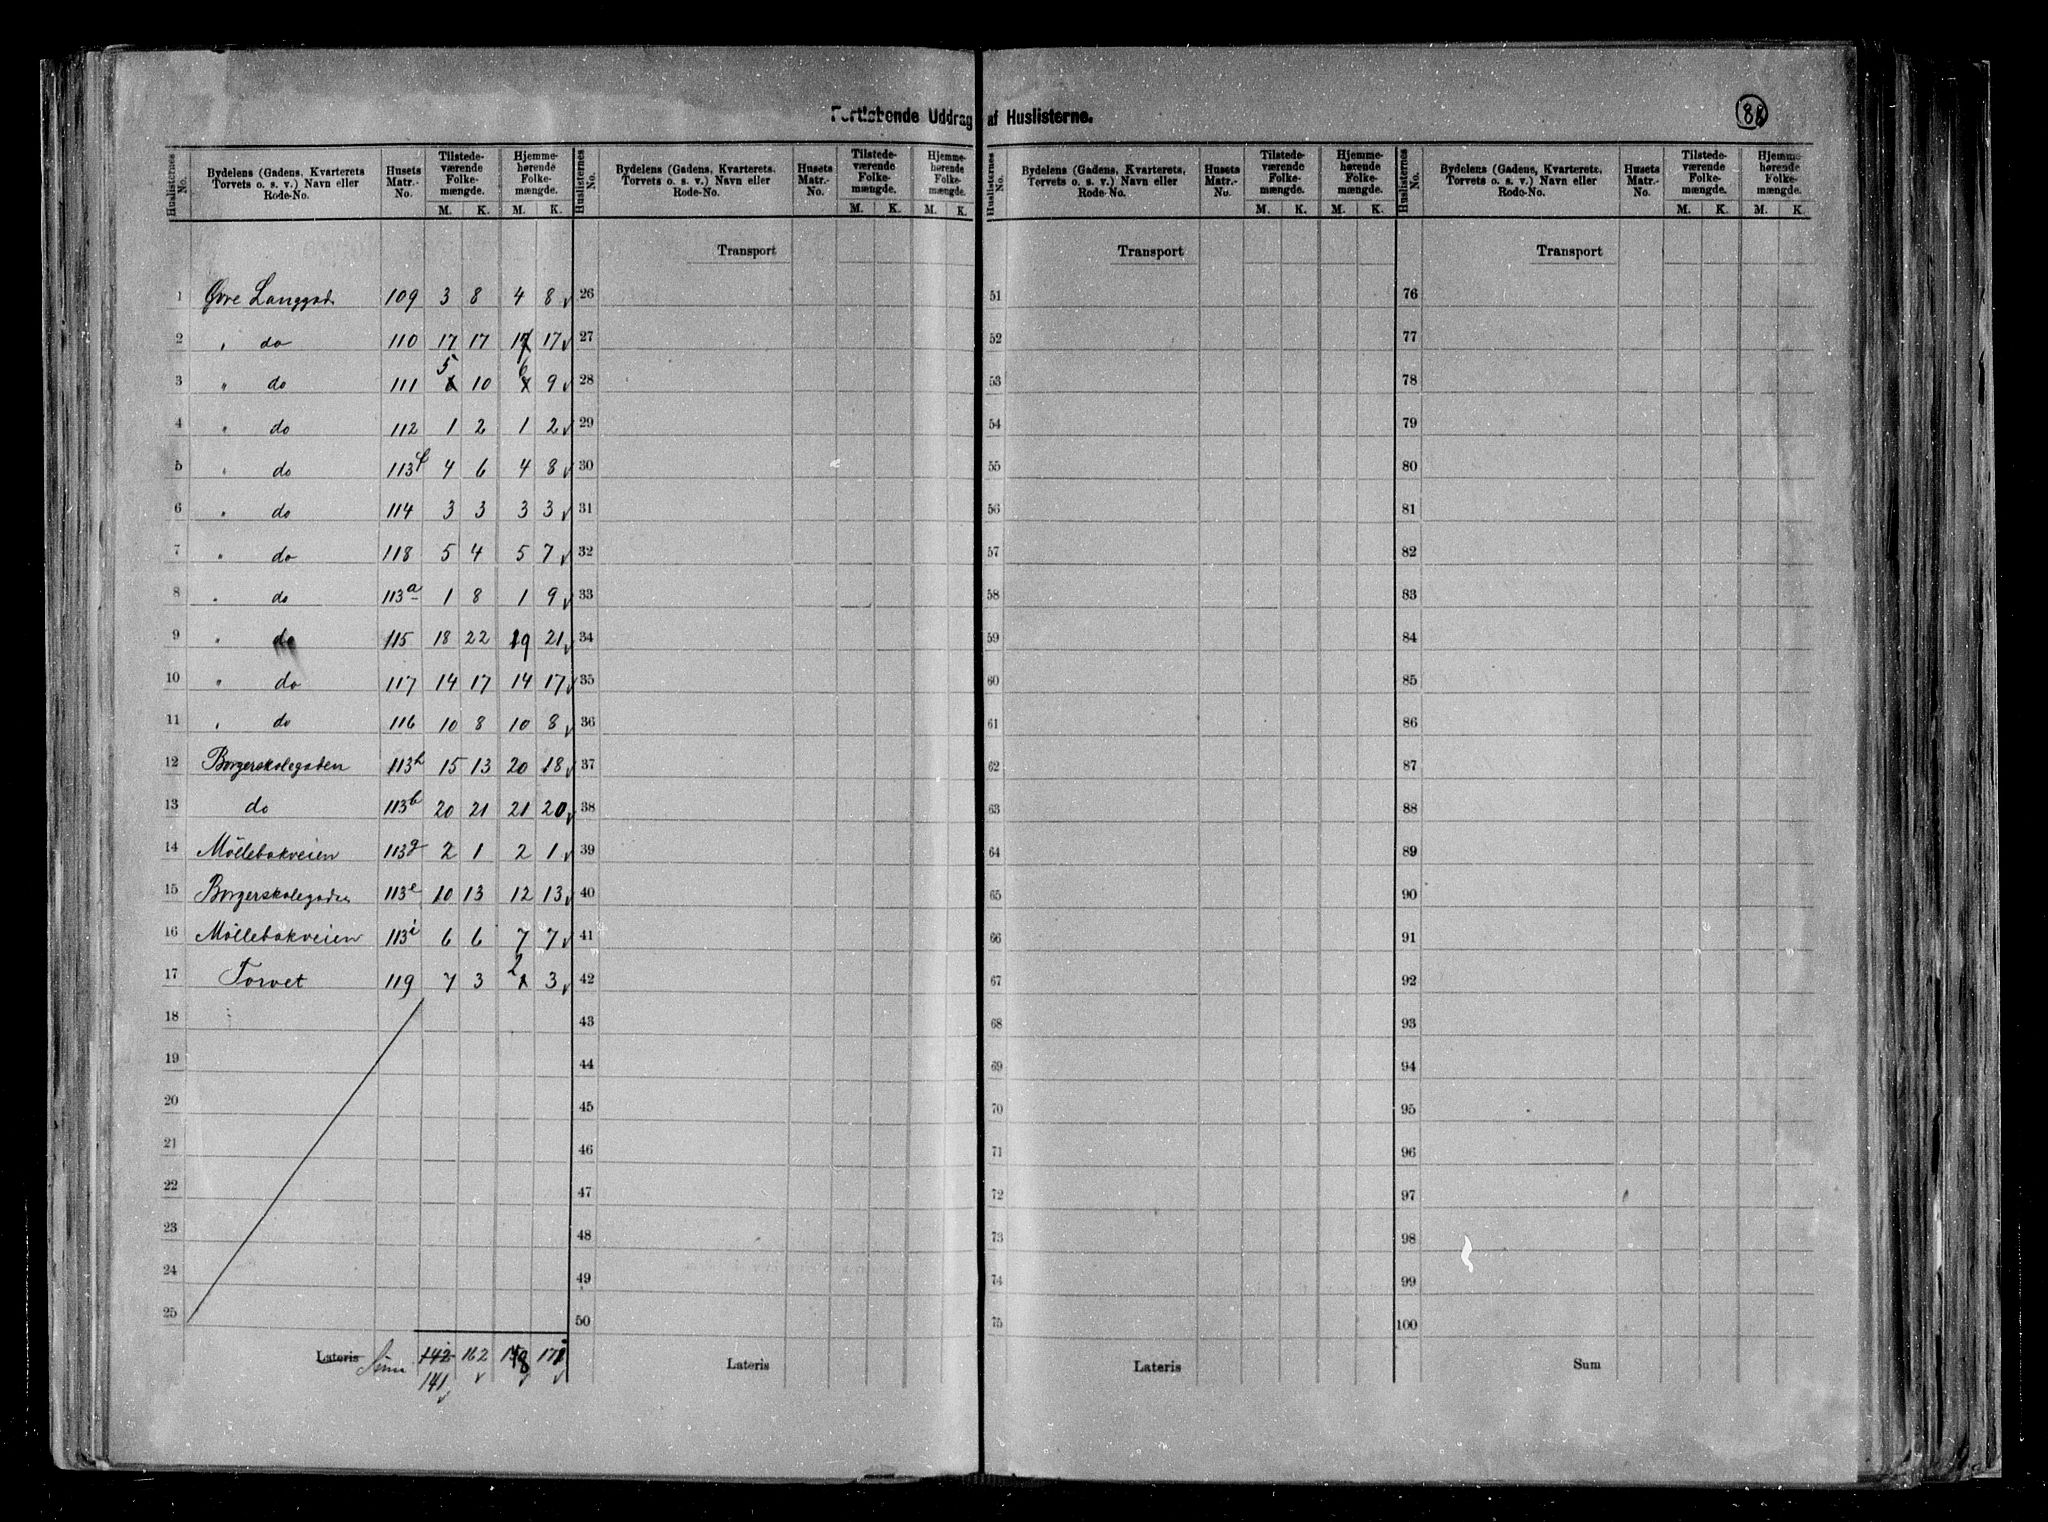 Fortløbende Uddrag af Huslisterne.
88
Huslisternes No. | Bydelens (Gadens, Kvarterets Torvets o. s. v.) Navn eller Rode-No. | Husets Matr.-No. | Tilstedeværende Folkemængde. M. K. | Hjemmehørende Folkemængde. M. K.
1 Øvre Langgad. 109 3 8 4 8
2 " do 110 17 17 17 17
3 " do 111 5 10 6 9
4 " do 112 1 2 1 2
5 " do 113f 4 6 4 8
6 " do 114 3 3 3 3
7 " do 118 5 4 5 7
8 " do 113a 1 8 1 9
9 " do 115 18 22 19 21
10 " do 117 14 17 14 17
11 " do 116 10 8 10 8
12 Borgerskolegaden 113h 15 13 20 18
13 do 113b 20 21 21 20
14 Möllebakveien 113g 2 1 2 1
15 Borgerskolegaden 113e 10 13 12 13
16 Möllebakveien 113i 6 6 7 7
17 Torvet 119 7 3 2 3
18
19
20
21
22
23
24
25
Lateris Sum 142 162 171
141
Huslisternes No. | Bydelens (Gadens, Kvarterets, Torvets o. s. v.) Navn eller Rode-No. | Husets Matr.-No. | Tilstedeværende Folkemængde. M. K. | Hjemmehørende Folkemængde. M. K.
Transport
26
27
28
29
30
31
32
33
34
35
36
37
38
39
40
41
42
43
44
45
46
47
48
49
50
Lateris
Huslisternes No. | Bydelens (Gadens, Kvarterets, Torvets o. s. v.) Navn eller Rode-No. | Husets Matr.-No. | Tilstedeværende Folkemængde. M. K. | Hjemmehørende Folkemængde. M. K.
Transport
51
52
53
54
55
56
57
58
59
60
61
62
63
64
65
66
67
68
69
70
71
72
73
74
75
Lateris
Huslisternes No. | Bydelens (Gadens, Kvarterets, Torvets o. s. v.) Navn eller Rode-No. | Husets Matr.-No. | Tilstedeværende Folkemængde. M. K. | Hjemmehørende Folkemængde. M. K.
Transport
76
77
78
79
80
81
82
83
84
85
86
87
88
89
90
91
92
93
94
95
96
97
98
99
100
Sum